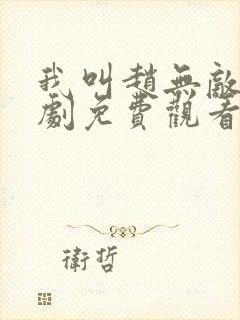 我叫趙無敵
劇免費觀看
衛哲